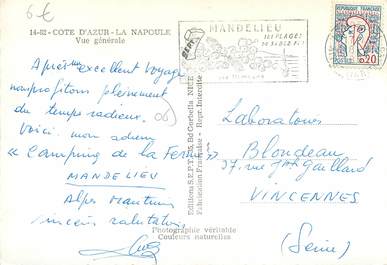 6€
14-82 - COTE D'AZUR - LA NAPOULE
Vue générale
MANDELIEU
SES PLAGES
POSTES
0,20
Après un excellent voyage
nous profitons pleinement
du temps radieux.
Voici mon adresse
« Camping de la Ferme »
MANDELIEU
Alpes Maritimes
sincères salutations
Editions S.E.P.T. Bd Gorbella NICE
Fabrication Française - Repr. Interdite
Laboratoires
Blondeau
37 rue Jph Gaillard
VINCENNES
(Seine)
Photographie véritable
Couleurs naturelles